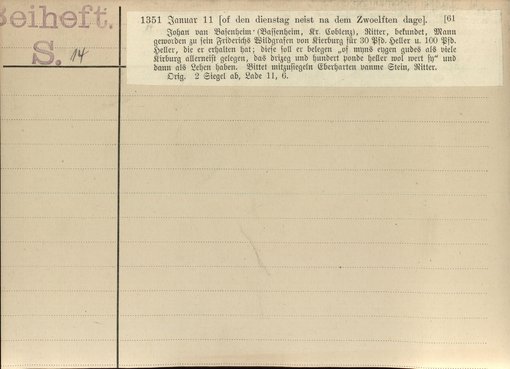 Beiheft.
S. 14
1351 Januar 11 [of den dienstag neist na dem Zwoelften dage]. [61
Johan van Basenheim (Bassenheim, Kr. Coblenz), Ritter, bekundet, Mann
geworden zu sein Friderichs Wildgrafen von Kierburg für 30 Pfd. Heller u. 100 Pfd.
Heller, die er erhalten hat; diese soll er belegen „of myns eygen gudes als viele
Kirburg allerneist gelegen, das drizeg und hundert ponde heller wol wert sy“ und
dann als Lehen haben. Bittet mitzusiegeln Eberharten vanme Stein, Ritter.
Orig. 2 Siegel ab, Lade 11, 6.